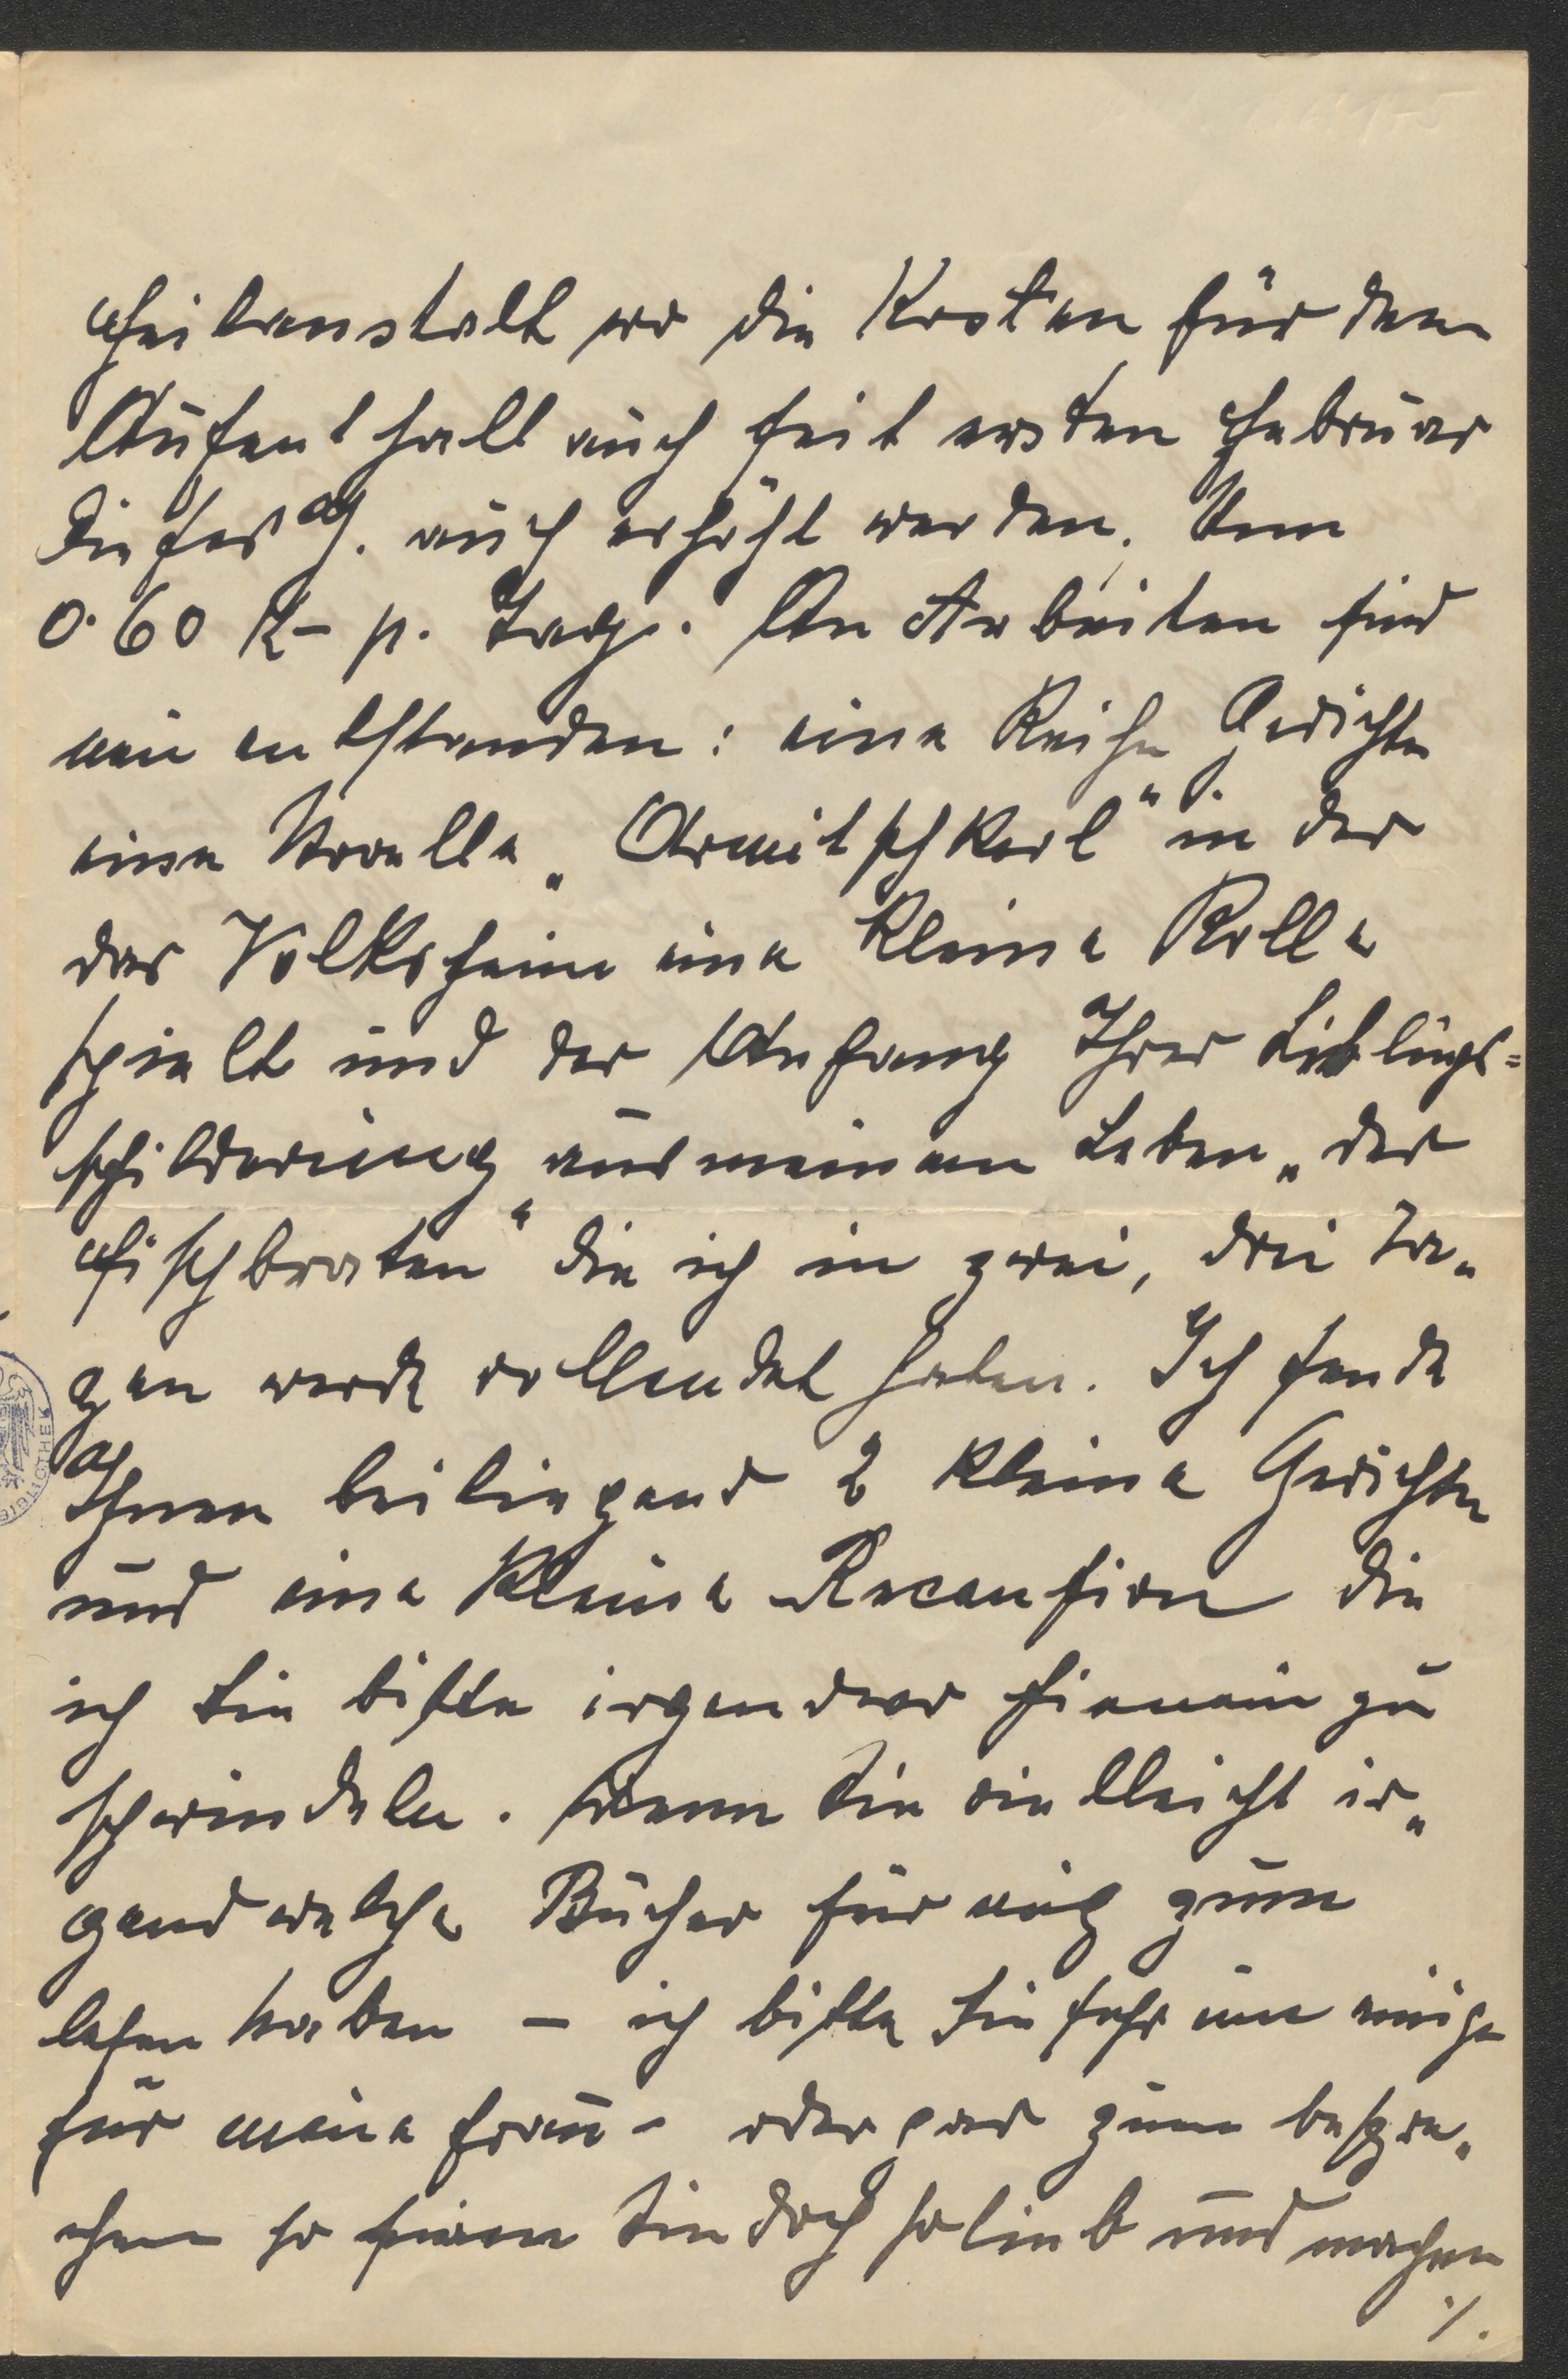 Heilanstalt wo die Kosten für den
Aufenthalt auch seit ersten Februar
dieses J. auch erhöht werden. Um
0.60 K – p. Tag. An Arbeiten sind
mir entstanden: eine Reihe Gedichte
eine Novelle „Armitschkerl" in der
das Volksheim eine kleine Rolle
spielt und der Anfang Ihrer Lieblings=
schilderung aus meinem Leben „der
Fischbraten" die ich in zwei, drei Ta„
gen werde vollendet haben. Ich sende
Ihnen beiliegend 2 kleine Gedichte
und eine kleine Recension die
ich Sie bitte irgendwo hienein zu
schwindeln. Wenn Sie vielleicht ir„
gend welche Bücher für mich zum
lesen haben – ich bitte Sie sehr um einige
für meine Frau – oder gar zum bespre„
chen so seien Sie doch so lieb und machen
./.